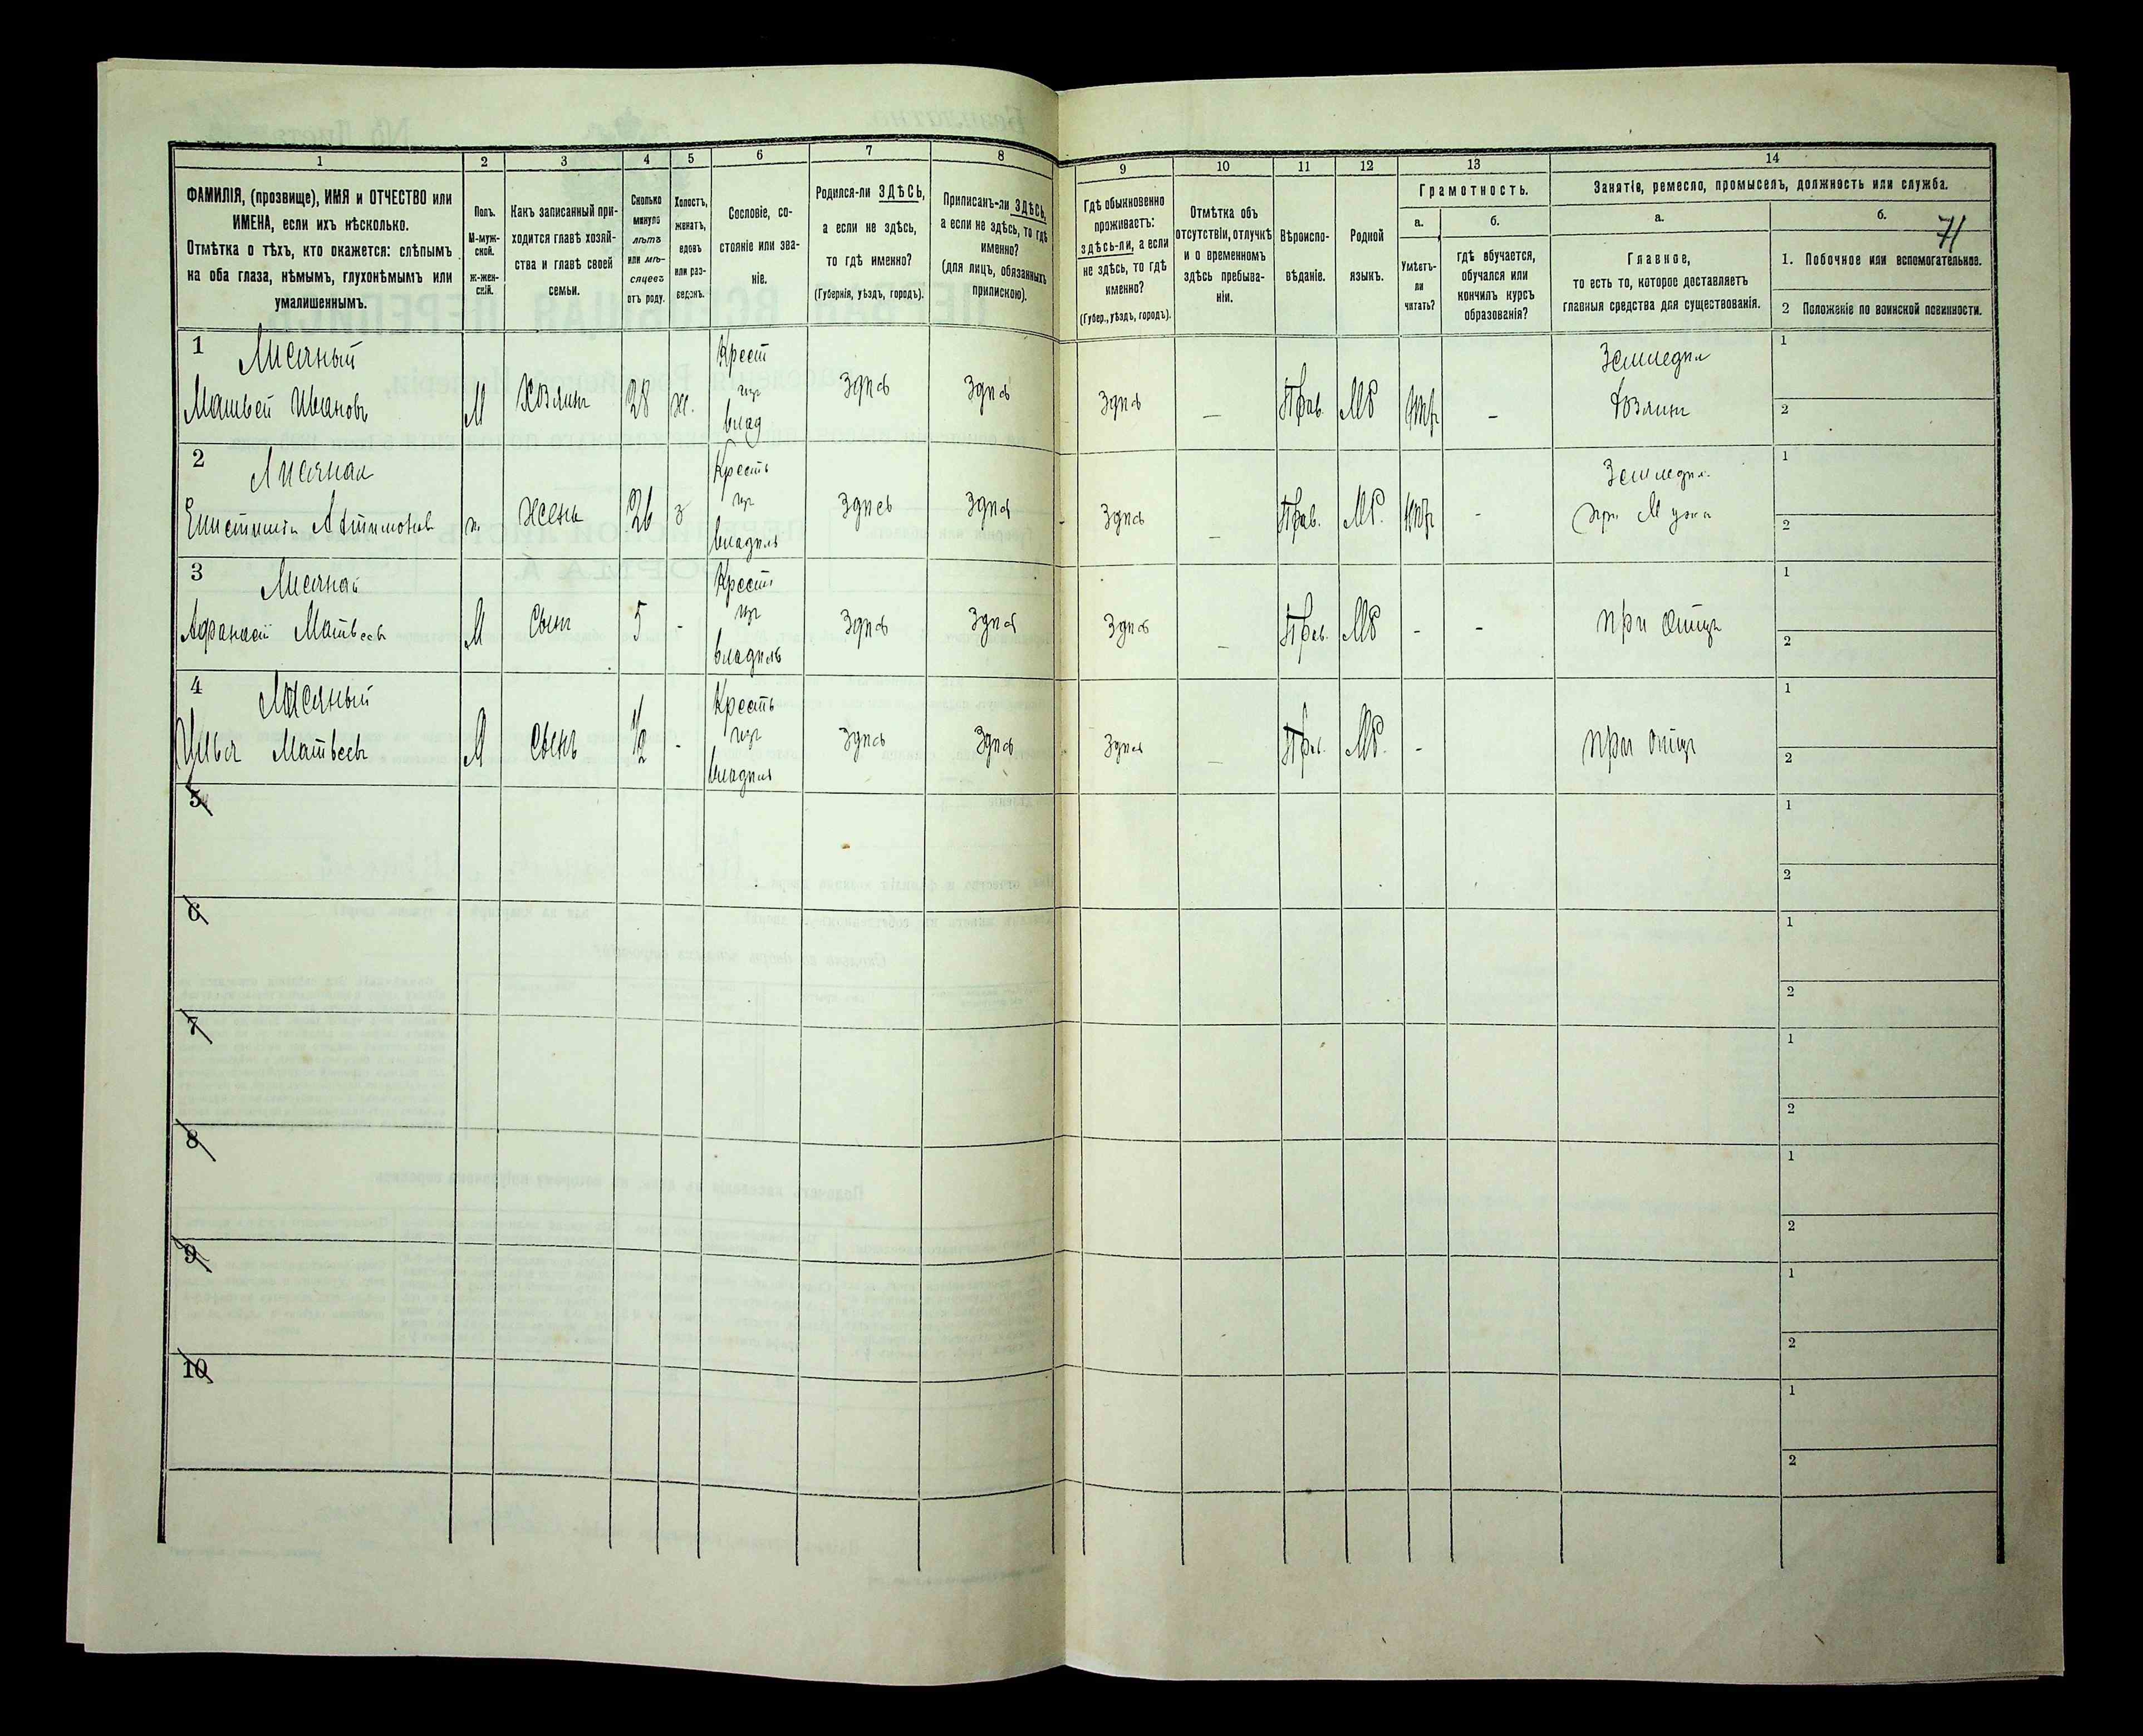 1 2 3 4 5 6 7 8 9 10 11 12 13 14
ФАМИЛІЯ, (прозвище), ИМЯ и ОТЧЕСТВО или
ИМЕНА, если ихъ нѣсколько.
Отмѣтка о тѣхъ, кто окажется: слѣпымъ
на оба глаза, нѣмымъ, глухонѣмымъ или
умалишеннымъ.
Полъ.
М-муж-
ской.
ж-жен-
скій.
Какъ записанный при-
ходится главѣ хозяй-
ства и главѣ своей
семьи.
Сколько
минуло
лѣтъ
или мѣ-
сяцевъ
отъ роду.
Холостъ,
женатъ,
вдовъ
или раз-
веденъ.
Сословіе, со-
стояніе или зва-
ніе.
Родился-ли ЗДѢСЬ,
а если не здѣсь,
то гдѣ именно?
(Губернія, уѣздъ, городъ).
Приписанъ-ли ЗДѢСЬ,
а если не здѣсь, то гдѣ
именно?
(для лицъ, обязанныхъ
припискою).
Гдѣ обыкновенно
проживаетъ:
здѣсь-ли, а если
не здѣсь, то гдѣ
именно?
(Губер., уѣздъ, городъ).
Отмѣтка объ
отсутствіи, отлучкѣ
и о временномъ
здѣсь пребыва-
ніи.
Вѣроиспо-
вѣданіе.
Родной
языкъ.
Грамотность.
а.
Умѣетъ-
ли
читать?
б.
гдѣ обучается,
обучался или
кончилъ курсъ
образованія?
Занятіе, ремесло, промыселъ, должность или служба.
а.
Главное,
то есть то, которое доставляетъ
главныя средства для существованія.
б.
71
1. Побочное или вспомогательное.
2 Положеніе по воинской повинности.
1
Матвей Ивановъ М Хозяинъ 28 ж. Крест изъ влад здѣсь здѣсь здѣсь — Прав. МР нѣтъ - Земледѣл Хозяинъ 1 2
2
Крестъ изъ владѣль
жена 26 з здѣсь здѣсь здѣсь — Прав. МР. нѣтъ - Земледѣл. при Мужѣ 1 2
3
Афанасій Матвеевъ М Сынъ 5 - Крестъ изъ владѣль здѣсь здѣсь здѣсь — Прав. МР - - при отцѣ 1 2
4
Илья Матвеевъ М Сынъ 1/2 - Крестъ изъ владѣль здѣсь здѣсь здѣсь — Прав. МР. - при отцѣ 1 2
5 1 2
6 1 2
7 1 2
8 1 2
9 1 2
10 1 2